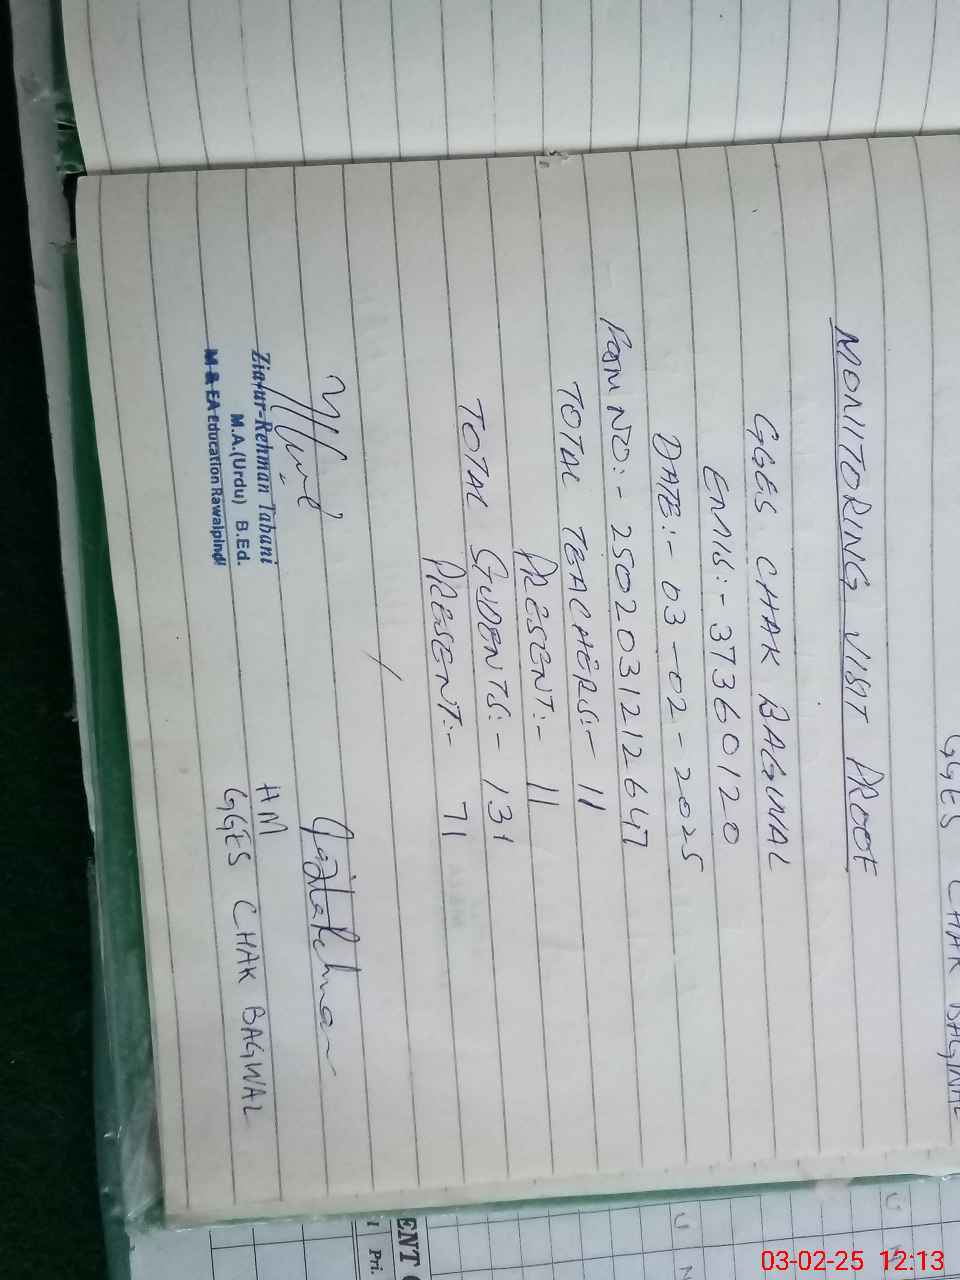 MONITORING VISIT PROOF
GGES CHAK BAGWAL
EMIS:- 37360120
DATE:- 03-02-2025
FORM NO:- 250203121264
TOTAL TEACHERS:- 11
PRESENT:- 11
TOTAL STUDENTS:- 131
PRESENT:- 71
Zia-ur-Rehman Tabani
M.A.(Urdu) B.Ed.
M & EA Education Rawalpindi
HM
GGES CHAK BAGWAL
GGES CHAK BAGWAL
ENT
1 Pri.
03-02-25 12:13